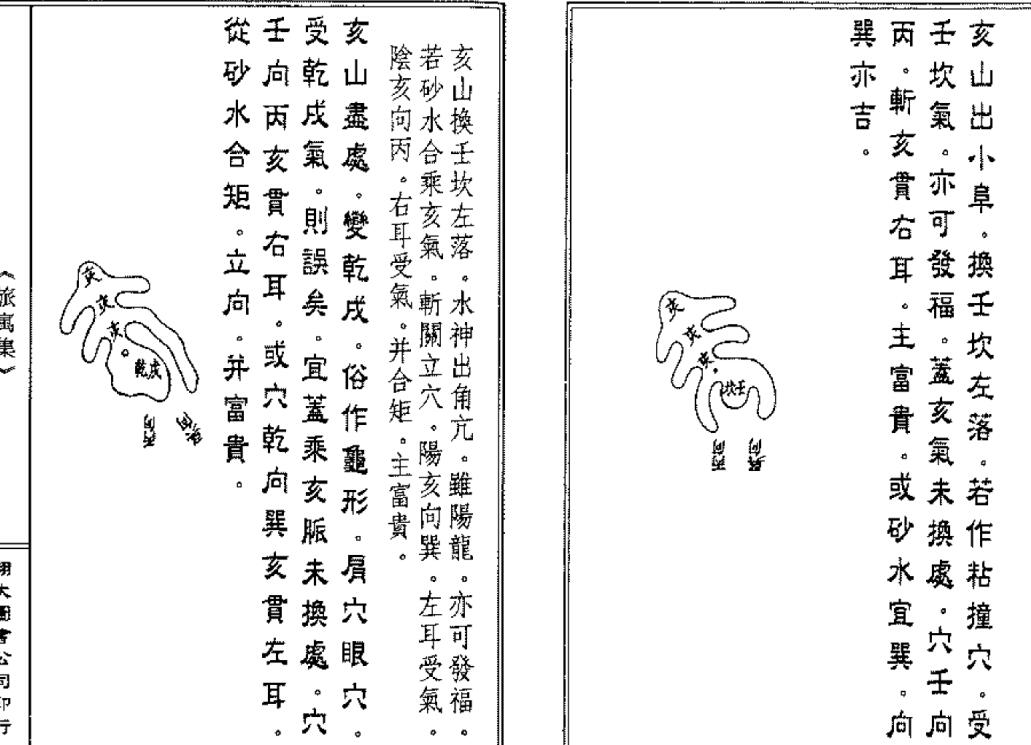 亥山出小阜。換壬坎左落。若作粘撞穴。受
壬坎氣。亦可發福。蓋亥氣未換處。穴壬向
丙。斬亥貫右耳。主富貴。或砂水宜巽。向
巽亦吉。
亥
亥
亥
坎壬
丙向
巽向
亥山換壬坎左落。水神出角亢。雖陽龍。亦可發福。
若砂水合乘亥氣。斬關立穴。陽亥向巽。左耳受氣。
陰亥向丙。右耳受氣。并合矩。主富貴。
亥山盡處。變乾戌。俗作龜形。肩穴眼穴。
受乾戌氣。則誤矣。宜蓋乘亥脈未換處。穴
壬向丙亥貫右耳。或穴乾向巽亥貫左耳。
從砂水合矩。立向。并富貴。
亥
亥
亥
乾戌
丙向
《旅寓集》
翔大圖書公司印行